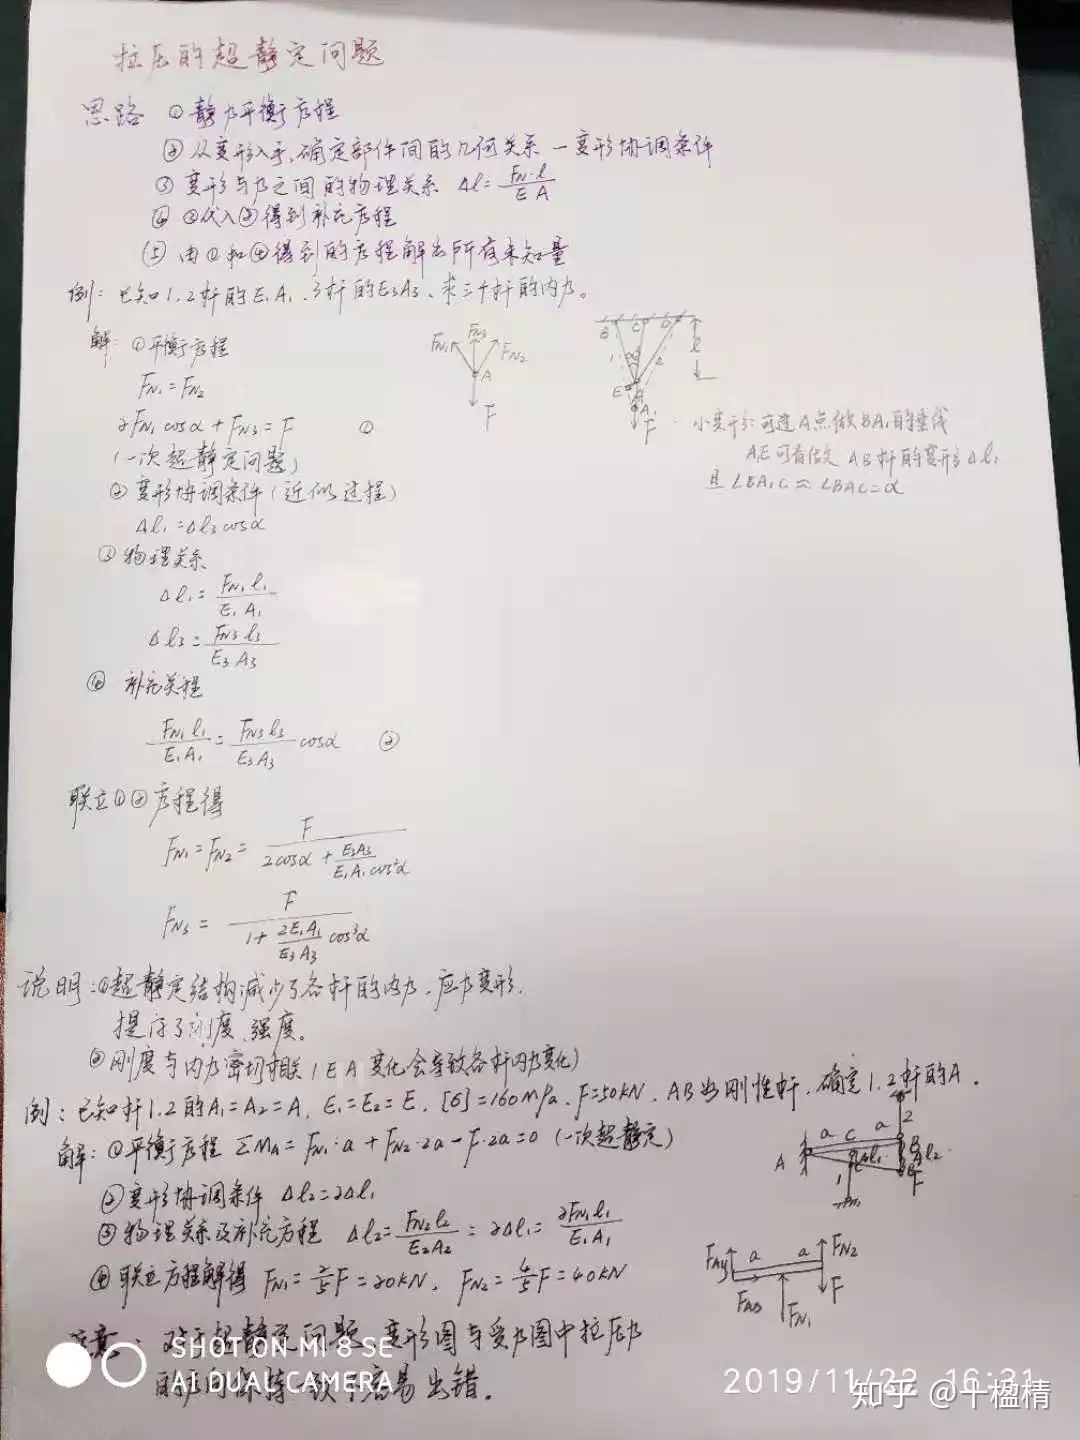 拉压的超静定问题
思路 ①静力平衡方程
②从变形入手,确定部件间的几何关系一变形协调条件
③ 变形与力之间的物理关系 Δl=FN·l/EA
④ ③代入②得到补充方程
⑤ 由①和④得到的方程解出所有未知量
例:已知1.2杆的E₁A₁、3杆的E₃A₃、求三个杆的内力。
解:①平衡方程
FN₁=FN₂
2FN₁cosα+FN₃=F ①
(一次超静定问题)
FN₁ FN₃ FN₂
A
F
B C D
1 2 l
E A
A₁
F
小变形:可过A点做BA₁的垂线
A₁E可看做AB杆的变形Δl₁
且∠BA₁C≈∠BAC=α
②变形协调条件(近似过程)
Δl₁=Δl₃cosα
③物理关系
Δl₁=FN₁l₁/E₁A₁
Δl₃=FN₃l₃/E₃A₃
④ 补充方程
FN₁l₁/E₁A₁=FN₃l₃/E₃A₃ cosα ②
联立①②方程得
FN₁=FN₂=F/(2cosα+E₃A₃/E₁A₁cos²α)
FN₃=F/(1+2E₁A₁/E₃A₃ cos³α)
说明:①超静定结构减少了各杆的内力、应力变形,
提高了刚度、强度。
②刚度与内力密切相关(EA变化会导致各杆内力变化)
例:已知杆1.2的A₁=A₂=A,E₁=E₂=E,[σ]=160MPa、F=50kN、AB为刚性杆,确定1.2杆的A.
解:①平衡方程 ΣMA=FN₁·a+FN₂·2a-F·2a=0(一次超静定)
②变形协调条件 Δl₂=2Δl₁
③物理关系及补充方程 Δl₂=FN₂l₂/E₂A₂=2Δl₁=2FN₁l₁/E₁A₁
④联立方程解得 FN₁=2/5F=20kN, FN₂=4/5F=40kN
A a C a B 2
1 Δl₁ Δl₂
F
FAy a a FN₂
FN₁ F
注意:对于超静定问题 变形图与受力图中拉压力
的方向保持一致 不容易出错.
SHOT ON MI 8 SE
AI DUAL CAMERA
2019/11/22 16:31
知乎 @千楹精